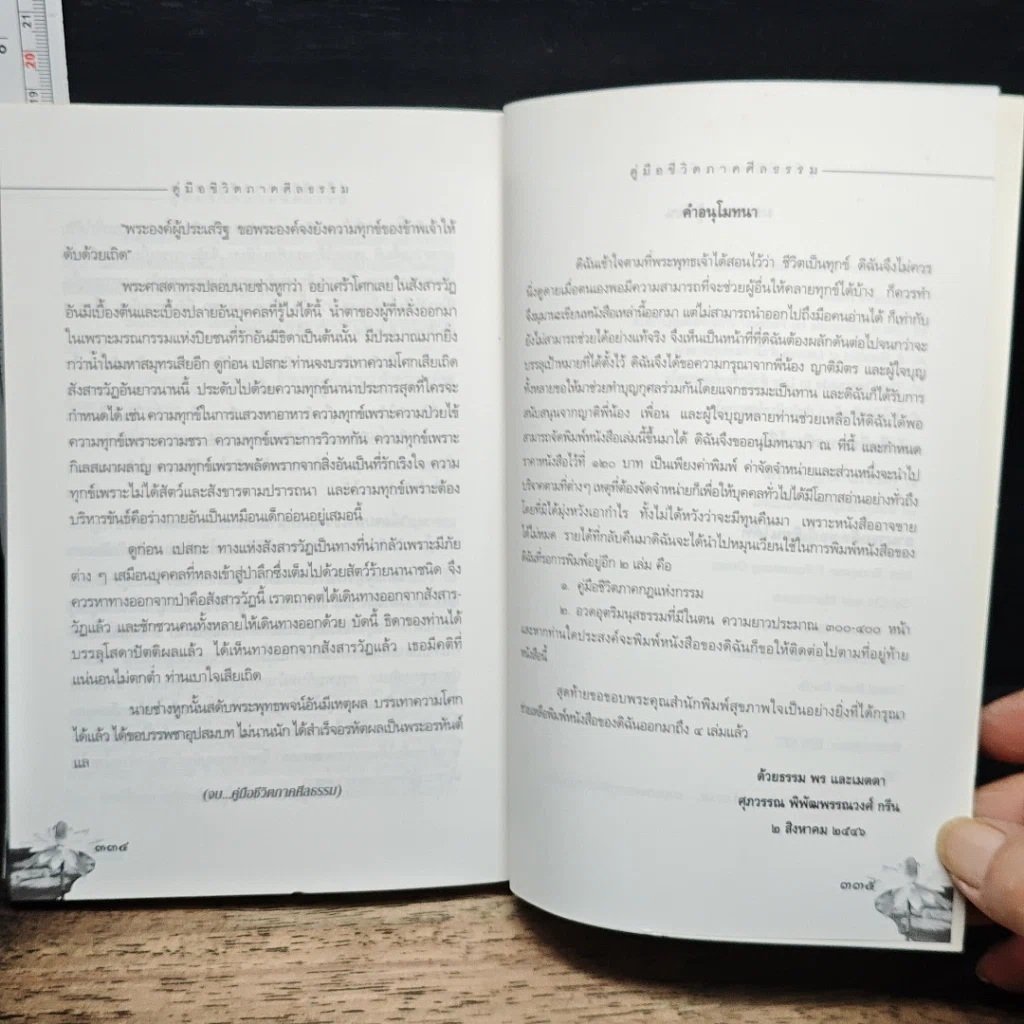 คู่มือชีวิตภาคศีลธรรม
"พระองค์ผู้ประเสริฐ ขอพระองค์จงยังความทุกข์ของข้าพเจ้าให้
ดับด้วยเถิด"
พระศาสดาทรงปลอบนายช่างหูกว่า อย่าเศร้าโศกเลย ในสังสารวัฏ
อันมีเบื้องต้นและเบื้องปลายอันบุคคลที่รู้ไม่ได้นี้ น้ำตาของผู้ที่หลั่งออกมา
ในเพราะมรณกรรมแห่งปิยชนที่รักอันมีธิดาเป็นต้นนั้น มีประมาณมากยิ่ง
กว่าน้ำในมหาสมุทรเสียอีก ดูก่อน เปสกะ ท่านจงบรรเทาความโศกเสียเถิด
สังสารวัฏอันยาวนานนี้ ประดับไปด้วยความทุกข์นานาประการสุดที่ใครจะ
กำหนดได้ เช่น ความทุกข์ในการแสวงหาอาหาร ความทุกข์เพราะความป่วยไข้
ความทุกข์เพราะความชรา ความทุกข์เพราะการวิวาทกัน ความทุกข์เพราะ
กิเลสเผาผลาญ ความทุกข์เพราะพลัดพรากจากสิ่งอันเป็นที่รักเริงใจ ความ
ทุกข์เพราะไม่ได้สัตว์และสังขารตามปรารถนา และความทุกข์เพราะต้อง
บริหารขันธ์คือร่างกายอันเป็นเหมือนเด็กอ่อนอยู่เสมอนี้
ดูก่อน เปสกะ ทางแห่งสังสารวัฏเป็นทางที่น่ากลัวเพราะมีภัย
ต่าง ๆ เสมือนบุคคลที่หลงเข้าสู่ป่าลึกซึ่งเต็มไปด้วยสัตว์ร้ายนานาชนิด จึง
ควรหาทางออกจากป่าคือสังสารวัฏนี้ เราตถาคตได้เดินทางออกจากสังสาร-
วัฏแล้ว และชักชวนคนทั้งหลายให้เดินทางออกด้วย บัดนี้ ธิดาของท่านได้
บรรลุโสดาปัตติผลแล้ว ได้เห็นทางออกจากสังสารวัฏแล้ว เธอมีคติที่
แน่นอนไม่ตกต่ำ ท่านเบาใจเสียเถิด
นายช่างหูกนั้นสดับพระพุทธพจน์อันมีเหตุผล บรรเทาความโศก
ได้แล้ว ได้ขอบรรพชาอุปสมบท ไม่นานนัก ได้สำเร็จอรหัตผลเป็นพระอรหันต์
แล
(จบ...คู่มือชีวิตภาคศีลธรรม)
๓๓๔
คู่มือชีวิตภาคศีลธรรม
คำอนุโมทนา
ดิฉันเข้าใจตามที่พระพุทธเจ้าได้สอนไว้ว่า ชีวิตเป็นทุกข์ ดิฉันจึงไม่ควร
นิ่งดูดายเมื่อตนเองพอมีความสามารถที่จะช่วยผู้อื่นให้คลายทุกข์ได้บ้าง ก็ควรทำ
จึงมุมานะเขียนหนังสือเหล่านี้ออกมา แต่ไม่สามารถนำออกไปถึงมือคนอ่านได้ ก็เท่ากับ
ยังไม่สามารถช่วยได้อย่างแท้จริง จึงเห็นเป็นหน้าที่ที่ดิฉันต้องผลักดันต่อไปจนกว่าจะ
บรรลุเป้าหมายที่ได้ตั้งไว้ ดิฉันจึงได้ขอความกรุณาจากพี่น้อง ญาติมิตร และผู้ใจบุญ
ทั้งหลายขอให้มาช่วยทำบุญกุศลร่วมกันโดยแจกธรรมะเป็นทาน และดิฉันก็ได้รับการ
สนับสนุนจากญาติพี่น้อง เพื่อน และผู้ใจบุญหลายท่านช่วยเหลือให้ดิฉันได้พอ
สามารถจัดพิมพ์หนังสือเล่มนี้ขึ้นมาได้ ดิฉันจึงขออนุโมทนามา ณ ที่นี้ และกำหนด
ราคาหนังสือไว้ที่ ๑๒๐ บาท เป็นเพียงค่าพิมพ์ ค่าจัดจำหน่ายและส่วนหนึ่งจะนำไป
บริจาคตามที่ต่างๆ เหตุที่ต้องจัดจำหน่ายก็เพื่อให้บุคคลทั่วไปได้มีโอกาสอ่านอย่างทั่วถึง
โดยที่มิได้มุ่งหวังเอากำไร ทั้งไม่ได้หวังว่าจะมีทุนคืนมา เพราะหนังสืออาจขาย
ได้ไม่หมด รายได้ที่กลับคืนมาดิฉันจะได้นำไปหมุนเวียนใช้ในการพิมพ์หนังสือของ
ดิฉันที่รอการพิมพ์อยู่อีก ๒ เล่ม คือ
๑. คู่มือชีวิตภาคกฎแห่งกรรม
๒. อวดอุตริมนุสธรรมที่มีในตน ความยาวประมาณ ๓๐๐-๔๐๐ หน้า
และหากท่านใดประสงค์จะพิมพ์หนังสือของดิฉันก็ขอให้ติดต่อไปตามที่อยู่ท้าย
หนังสือนี้
สุดท้ายขอขอบพระคุณสำนักพิมพ์สุขภาพใจเป็นอย่างยิ่งที่ได้กรุณา
ช่วยเหลือพิมพ์หนังสือของดิฉันออกมาถึง ๔ เล่มแล้ว
ด้วยธรรม พร และเมตตา
ศุภวรรณ พิพัฒพรรณวงศ์ กรีน
๒ สิงหาคม ๒๕๔๖
๓๓๕
21
20
19